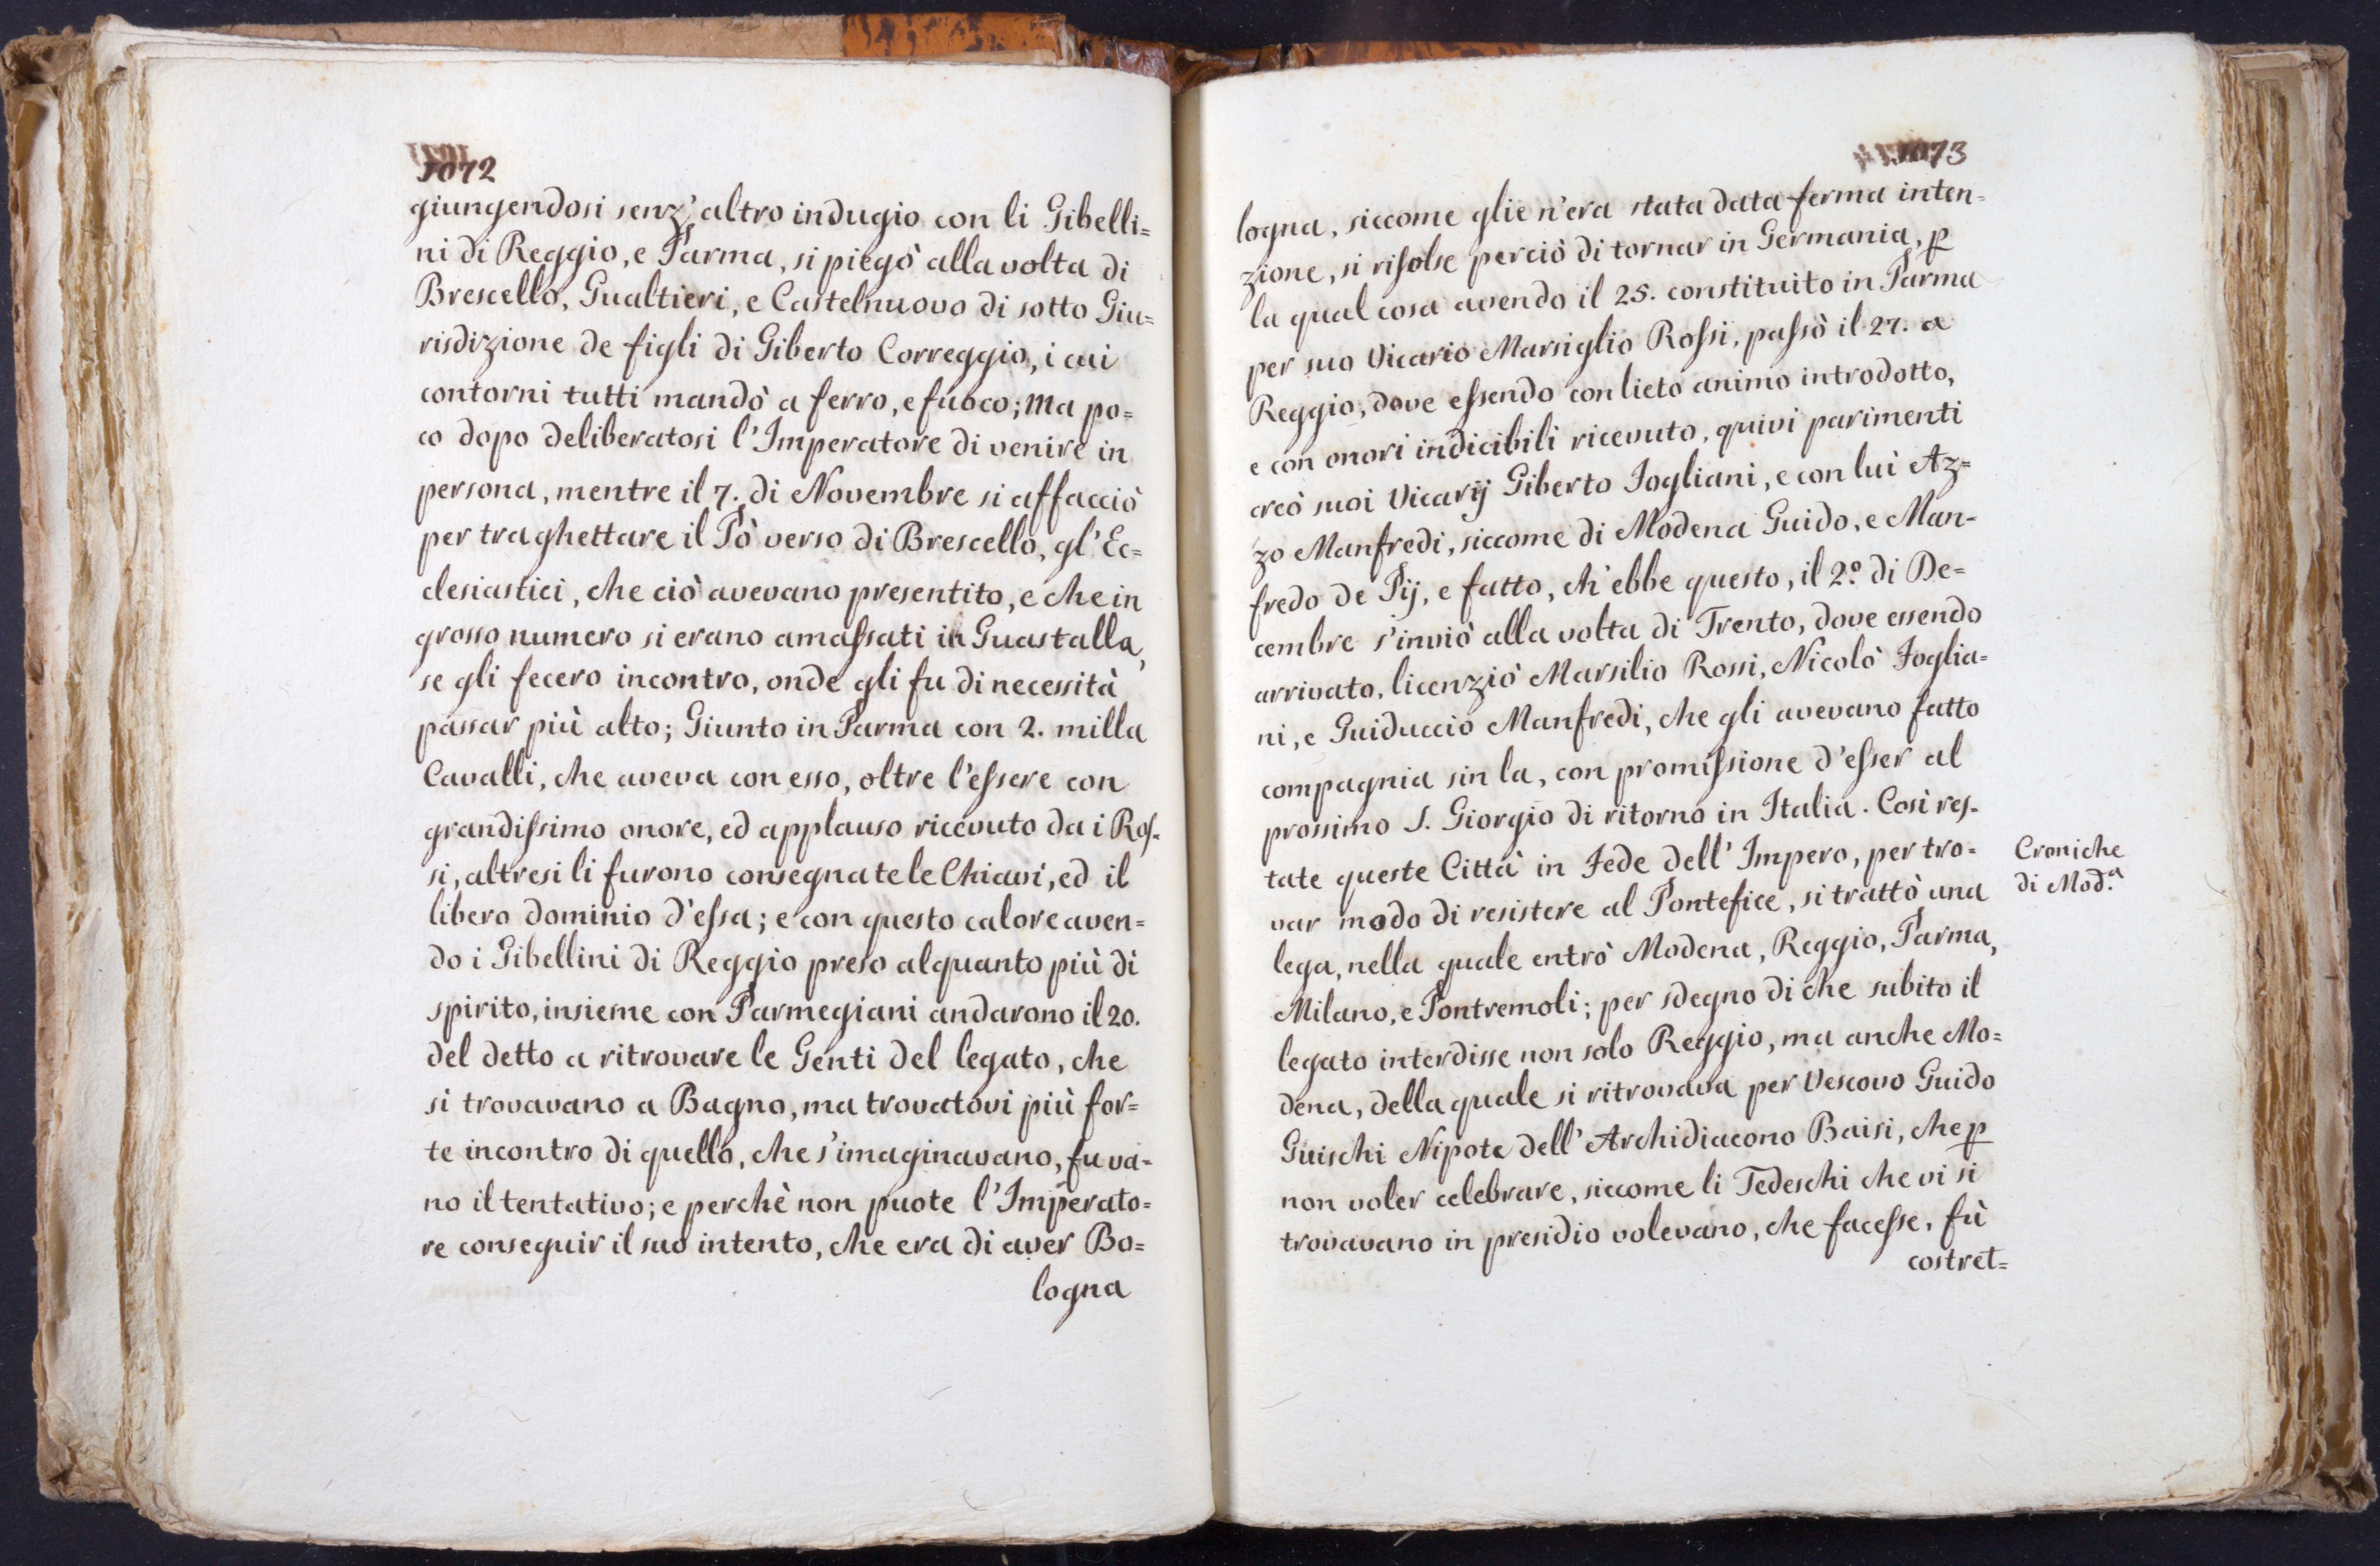 1072
giungendosi senz'altro indugio con li Gibelli=
ni di Reggio, e Parma, si piegò alla volta di
Brescello, Gualtieri, e Castelnuovo di sotto Giu=
risdizione de figli di Giberto Correggio, i cui
contorni tutti mandò a ferro, e fuoco; Ma po=
co dopo deliberatosi l'Imperatore di venire in
persona, mentre il 7. di Novembre si affacciò
per traghettare il Pò verso di Brescello, gl'Ec=
clesiastici, che ciò avevano presentito, e che in
grosso numero si erano amaſsati in Guastalla,
se gli fecero incontro, onde gli fu di necessità
passar più alto; Giunto in Parma con 2. milla
Cavalli, che aveva con esso, oltre l'eſsere con
grandiſsimo onore, ed applauso ricevuto da i Roſ=
si, altresi li furono consegnate le Chiavi, ed il
libero dominio d'eſsa; e con questo calore aven=
do i Gibellini di Reggio preso alquanto più di
spirito, insieme con Parmegiani andarono il 20.
del detto a ritrovare le Genti del legato, che
si trovavano a Bagno, ma trovatovi più for=
te incontro di quello, che s'imaginavano, fu va=
no il tentativo; e perchè non puote l'Imperato=
re conseguir il suo intento, che era di aver Bo=
logna
1073
logna, siccome glie n'era stata data ferma inten=
zione, si riſolse perciò di tornar in Germania, ꝑ
la qual cosa avendo il 25. constituito in Parma
per suo Vicario Marsiglio Roſsi, paſsò il 27. a
Reggio, dove eſsendo con lieto animo introdotto,
e con onori indicibili ricevuto, quivi parimenti
creò suoi Vicarij Giberto Fogliani, e con lui Az=
zo Manfredi, siccome di Modena Guido, e Man=
fredo de Pij, e fatto, ch'ebbe questo, il 2º di De=
cembre s'inviò alla volta di Trento, dove essendo
arrivato, licenziò Marsilio Rossi, Nicolò Foglia=
ni, e Guiduccio Manfredi, che gli avevano fatto
compagnia sin la, con promiſsione d'eſser al
prossimo S. Giorgio di ritorno in Italia. Così reſ=
tate queste Città in Fede dell'Impero, per tro=
var modo di resistere al Pontefice, si trattò una
lega, nella quale entrò Modena, Reggio, Parma,
Milano, e Pontremoli; per sdegno di che subito il
legato interdisse non solo Reggio, ma anche Mo=
dena, della quale si ritrovava per Vescovo Guido
Guischi Nipote dell'Archidiacono Baisi, che ꝑ
non voler celebrare, siccome li Tedeschi che vi si
trovavano in presidio volevano, che faceſse, fù
costret=
Croniche
di Mod.ª